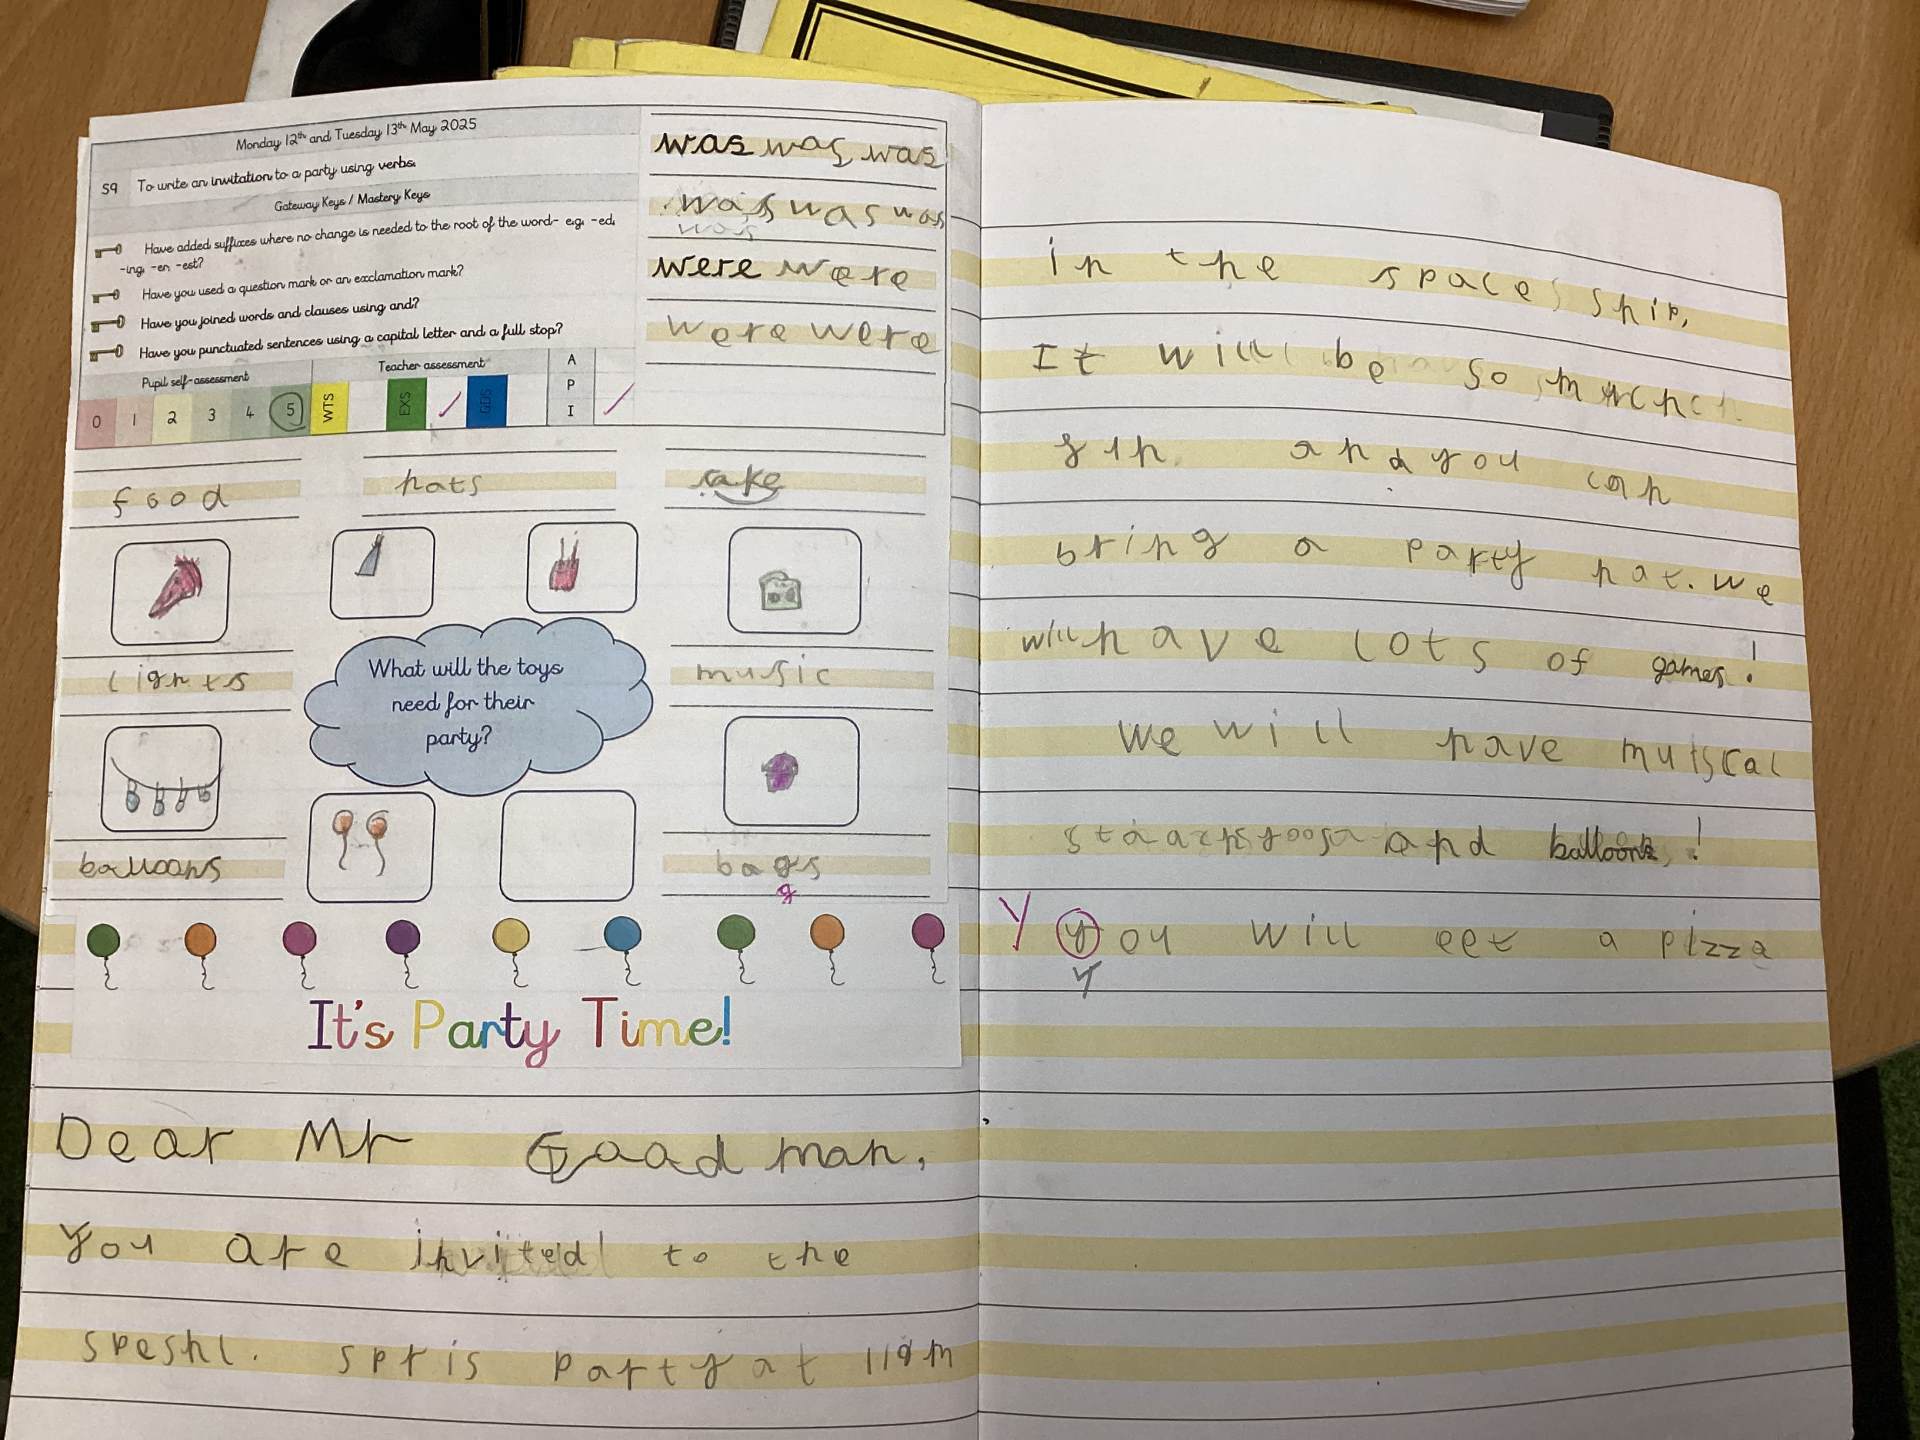 Monday 12th and Tuesday 13th May 2025
S9 To write an invitation to a party using verbs.
Gateway Keys / Mastery Keys
Have added suffixes where no change is needed to the root of the word- e.g. -ed,
-ing, -er, -est?
Have you used a question mark or an exclamation mark?
Have you joined words and clauses using and?
Have you punctuated sentences using a capital letter and a full stop?
Pupil self-assessment Teacher assessment
A
P
I
0 1 2 3 4 5 WTS EXS GDS
was was was
was was was
was
were were
were were
food hats cake
What will the toys
need for their
party?
lights music
balloons bags
g
It's Party Time!
Dear Mr Goodman,
you are invited to the
speshl. spris party at 11am
in the space ship,
It will be so much
fin and you can
bring a party hat. we
will have lots of games!
we will have
and balloons!
Y you will eet a pizza
Y